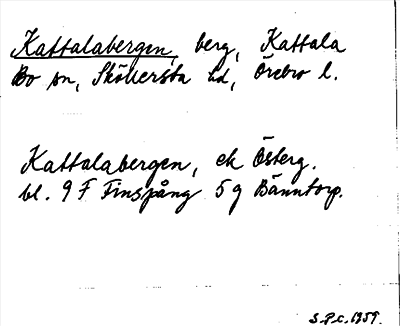 Kattalabergen, berg, Kattala
Bo sn, Sköllersta hd, Örebro l.
Kattalabergen, ek Österg.
bl. 9 F Finspång 5 g Bänntorp.
S.P.c. 1959.